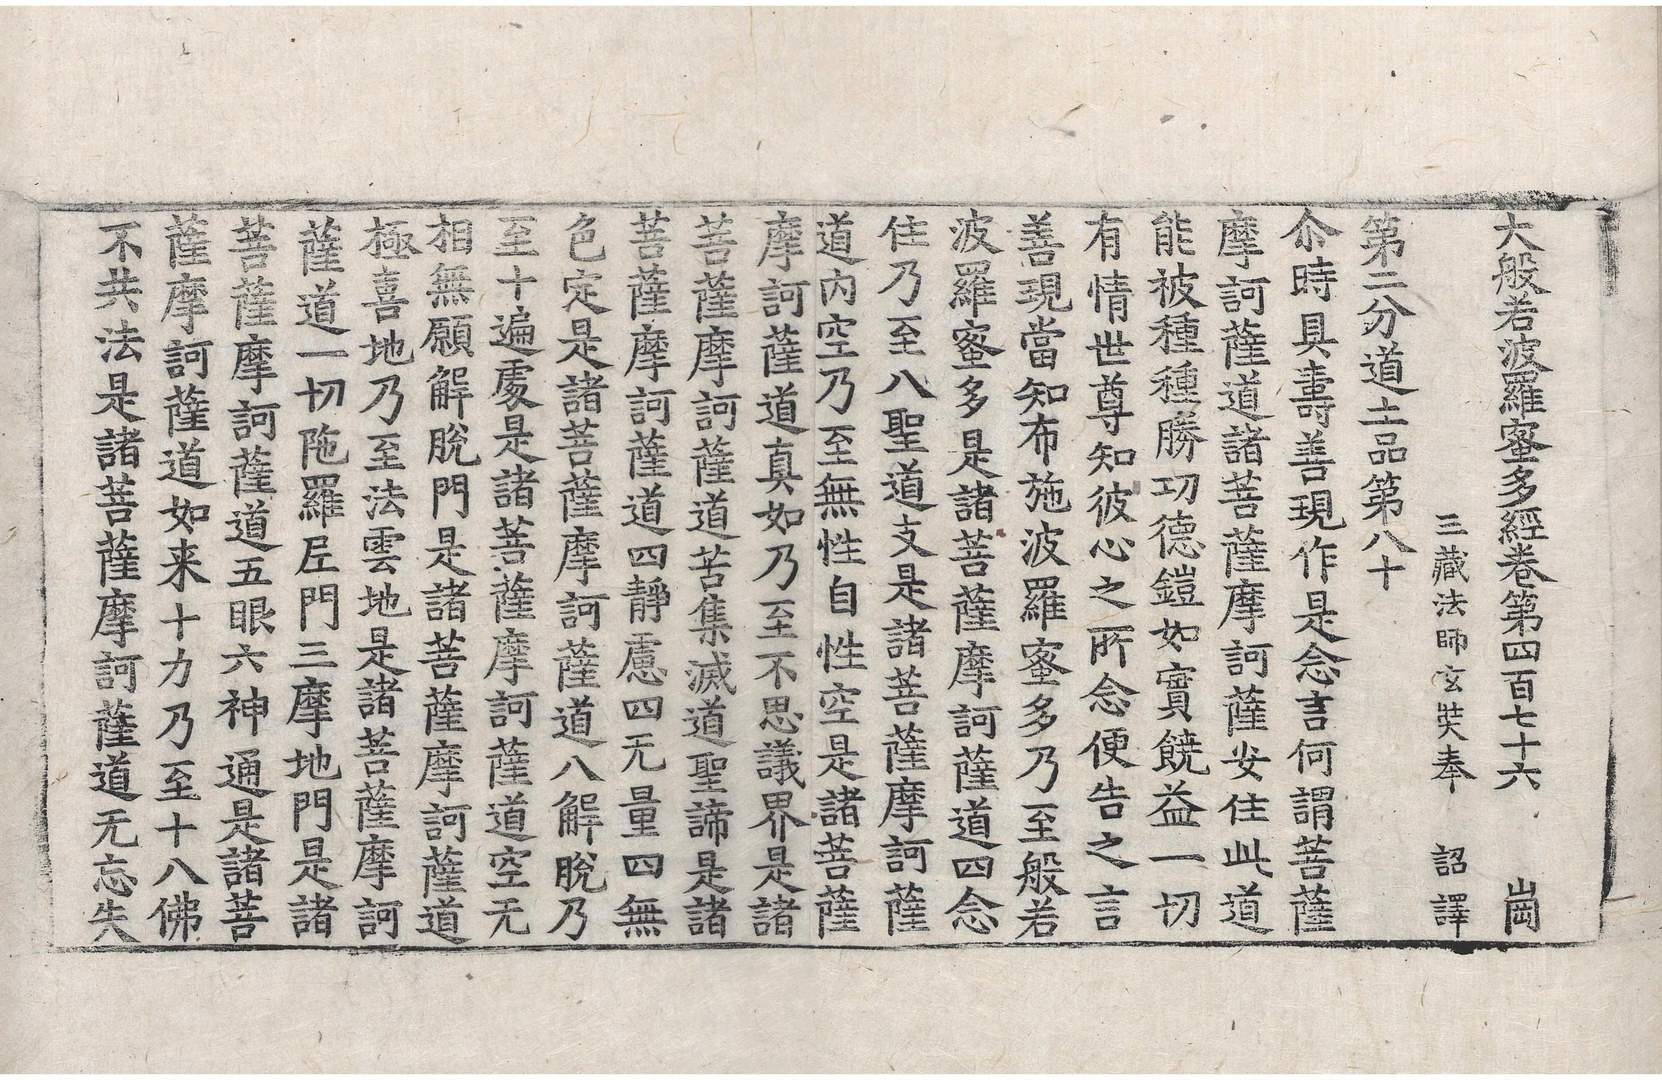 大般若波羅蜜多經卷第四百七十六　崗
三藏法師玄奘奉　詔譯
第二分道土品第八十
尒時具壽善現作是念言何謂菩薩
摩訶薩道諸菩薩摩訶薩安住此道
能被種種勝功德鎧如實饒益一切
有情世尊知彼心之所念便告之言
善現當知布施波羅蜜多乃至般若
波羅蜜多是諸菩薩摩訶薩道四念
住乃至八聖道支是諸菩薩摩訶薩
道內空乃至無性自性空是諸菩薩
摩訶薩道真如乃至不思議界是諸
菩薩摩訶薩道苦集滅道聖諦是諸
菩薩摩訶薩道四靜慮四无量四無
色定是諸菩薩摩訶薩道八解脫乃
至十遍處是諸菩薩摩訶薩道空无
相無願解脫門是諸菩薩摩訶薩道
極喜地乃至法雲地是諸菩薩摩訶
薩道一切陁羅尼門三摩地門是諸
菩薩摩訶薩道五眼六神通是諸菩
薩摩訶薩道如来十力乃至十八佛
不共法是諸菩薩摩訶薩道无忘失